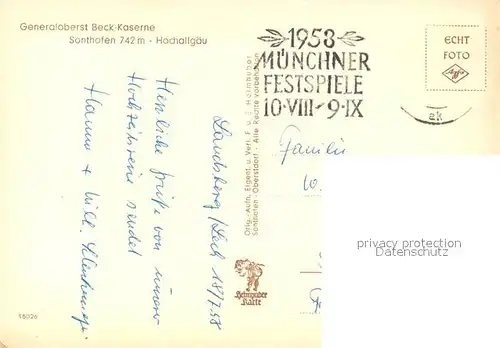 Generaloberst Beck-Kaserne
Sonthofen 742 m - Hochallgäu
1958
MÜNCHNER
FESTSPIELE
10·VIII-9·IX
ECHT
FOTO
Agfa
ak
Landsberg/Lech 18/7.58
Herzliche Grüße von unserer
Hochzeitsreise sendet
Hanna + Willi
Familie
Orig.-Aufn. Eigent. u. Verl. F. u. J. Heimhuber
Sonthofen - Oberstdorf - Alle Rechte vorbehalten
Heimhuber
Karte
privacy protection
Datenschutz
15026